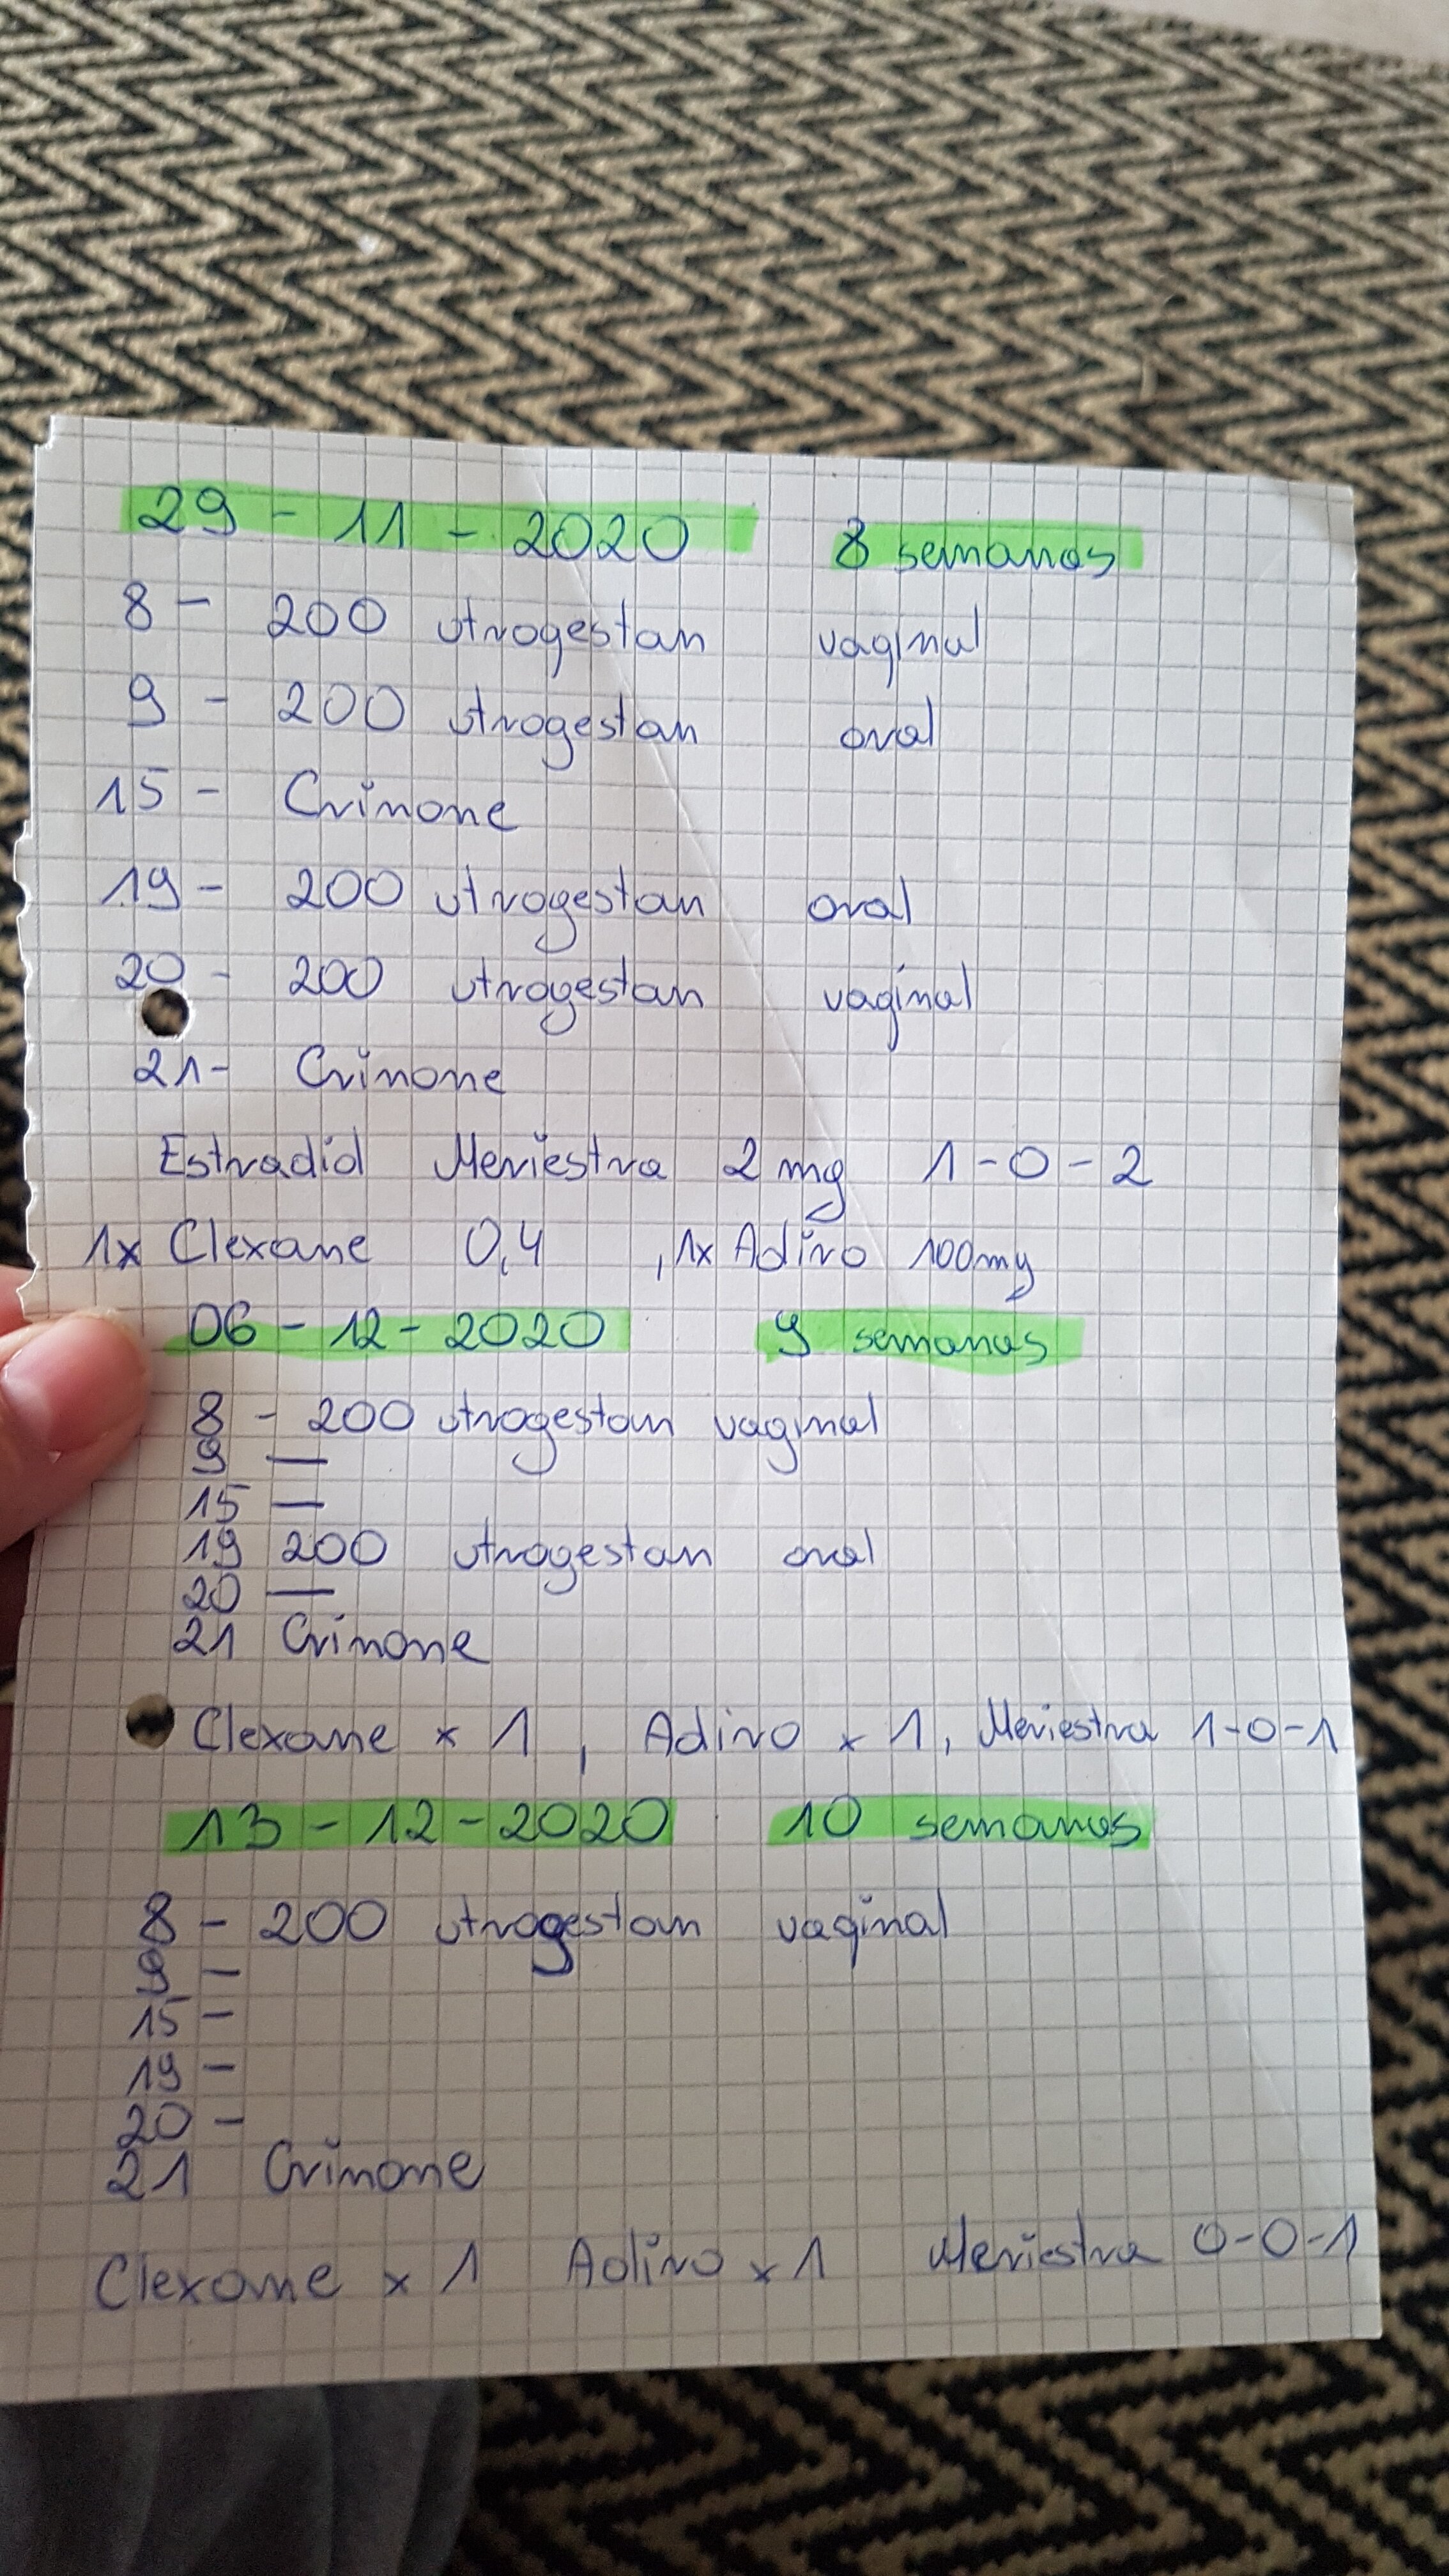 29 - 11 - 2020 8 semanas
8 - 200 utrogestan vaginal
9 - 200 utrogestan oral
15 - Crinone
19 - 200 utrogestan oral
20 - 200 utrogestan vaginal
21 - Crinone
Estradiol Meriestra 2 mg 1-0-2
1x Clexane 0,4 , 1x Adiro 100mg
06 - 12 - 2020 9 semanas
8 - 200 utrogestan vaginal
9 —
15 —
19 200 utrogestan oral
20 —
21 Crinone
Clexane x 1 , Adiro x 1, Meriestra 1-0-1
13 - 12 - 2020 10 semanas
8 - 200 utrogestan vaginal
9 —
15 —
19 —
20 —
21 Crinone
Clexane x 1 Adiro x 1 Meriestra 0-0-1